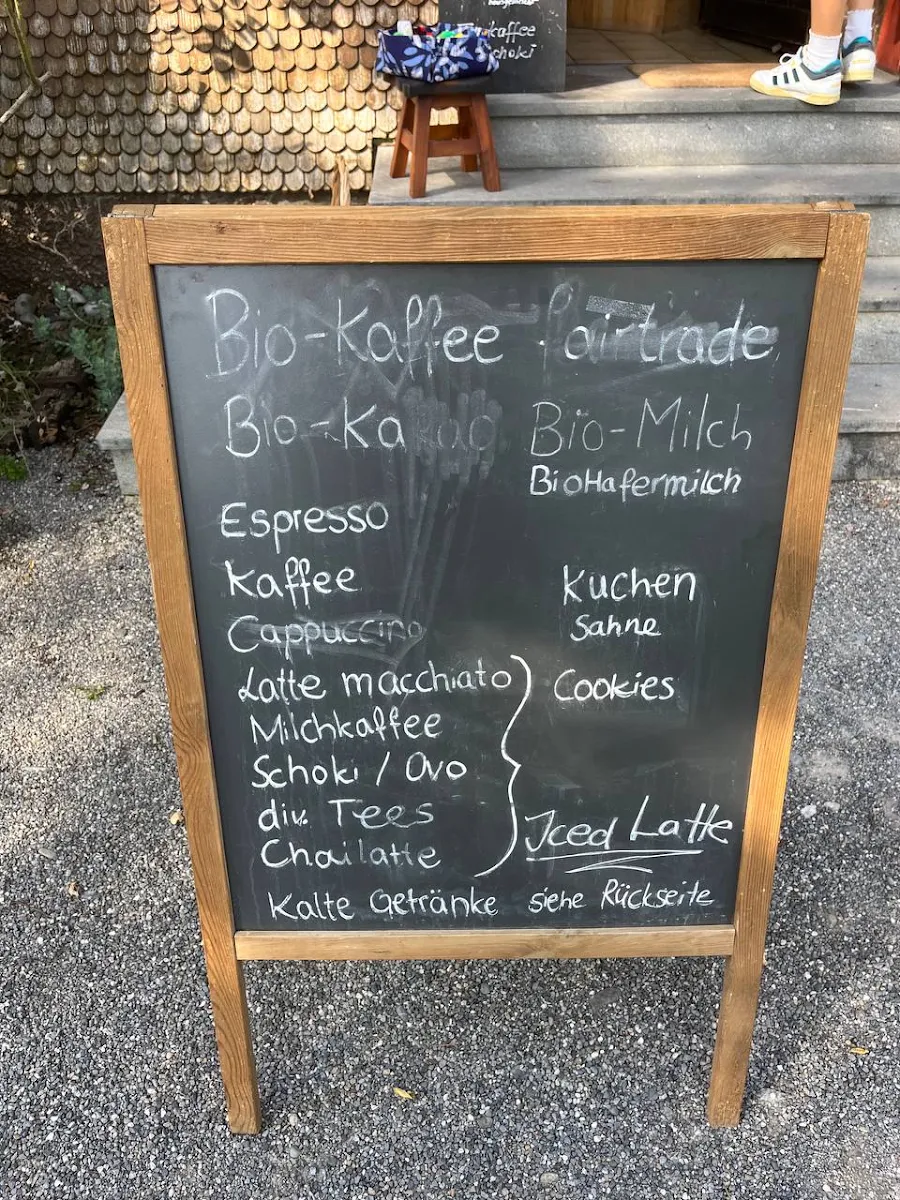 kaffee
schoki
Bio-Kaffee fairtrade
Bio-Kakao
Bio-Milch
BioHafermilch
Espresso
Kaffee
Cappuccino
Latte macchiato
Milchkaffee
Schoki / Ovo
div. Tees
Chailatte
Kuchen
Sahne
Cookies
Iced Latte
Kalte Getränke siehe Rückseite